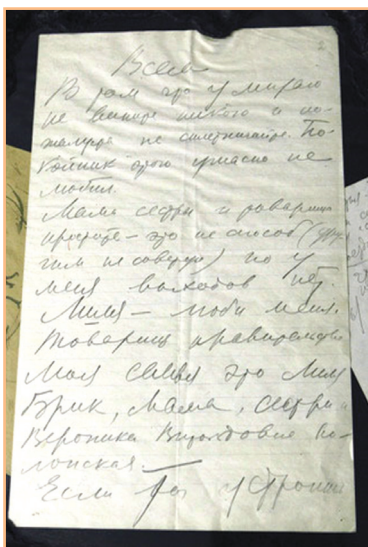 Всем
В том что умираю
не вините никого и по-
жалуйста не сплетничайте. По-
койник этого ужасно не
любил.
Мама сестры и товарищи
простите – это не способ (дру-
гим не советую) но у
меня выходов нет.
Лиля – люби меня.
Товарищ правительство
моя семья это Лиля
Брик, мама, сестры и
Вероника Витольдовна По-
лонская
Если ты устроишь